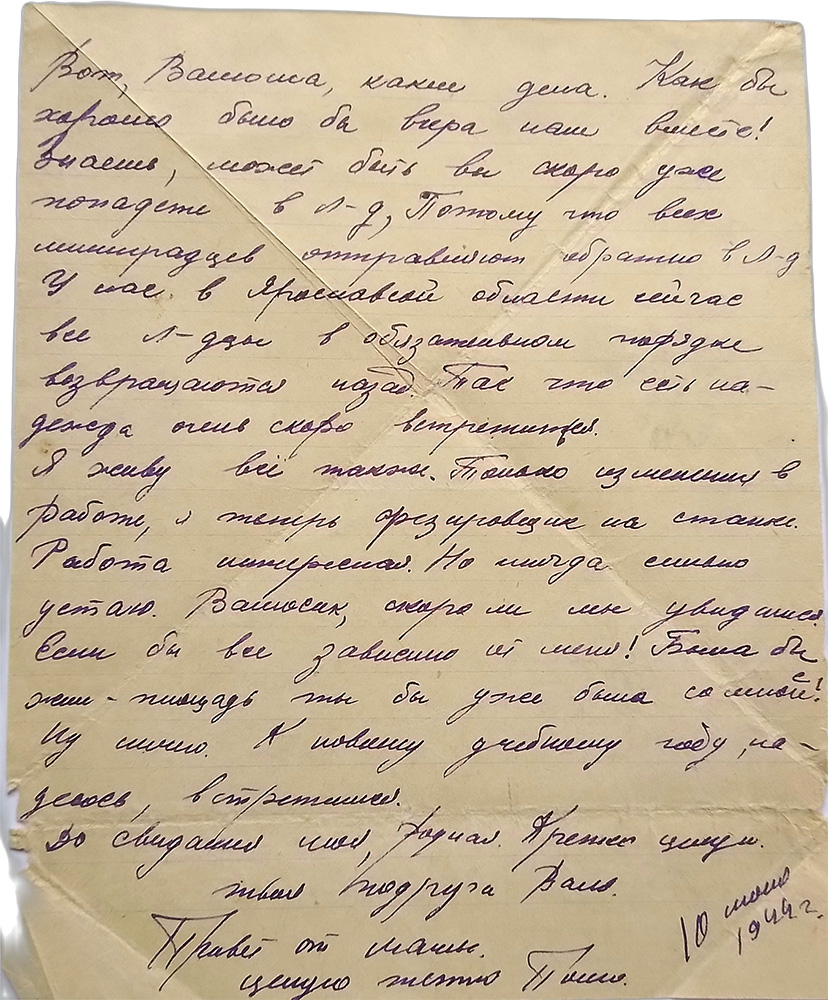 Вот, Валюша, какие дела. Как бы
хорошо было бы вчера нам вместе!
Знаешь, может быть вы скоро уже
попадете в Л-д, Потому что всех
ленинградцев отправляют обратно в Л-д
У нас в Ярославской области сейчас
все Л-дцы в обязательном порядке
возвращаются назад. Так что есть на-
дежда очень скоро встретиться.
Я живу всё также. Только изменения в
работе, я теперь фрезировщик на станке.
Работа интересная. Но иногда сильно
устаю. Валюсик, скоро ли мы увидимся.
Если бы все зависило от меня! Была бы
жил-площадь ты бы уже была со мной!
Ну ничего. К новому учебному году, на-
деюсь, встретимся.
До свидания моя, родная. Крепко целую.
твоя подруга Валя.
10 июня
1944 г.
Привет от мамы.
целую тетю Полю.